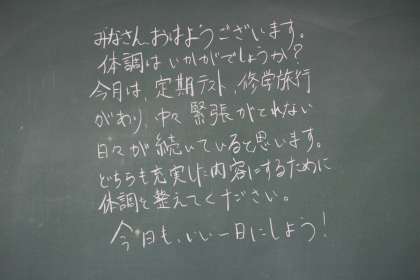 みなさん、おはようございます。
体調はいかがでしょうか?
今月は、定期テスト、修学旅行
があり、中々緊張がとれない
日々が続いていると思います。
どちらも充実した内容にするために
体調を整えてください。
今日も、いい一日にしよう!